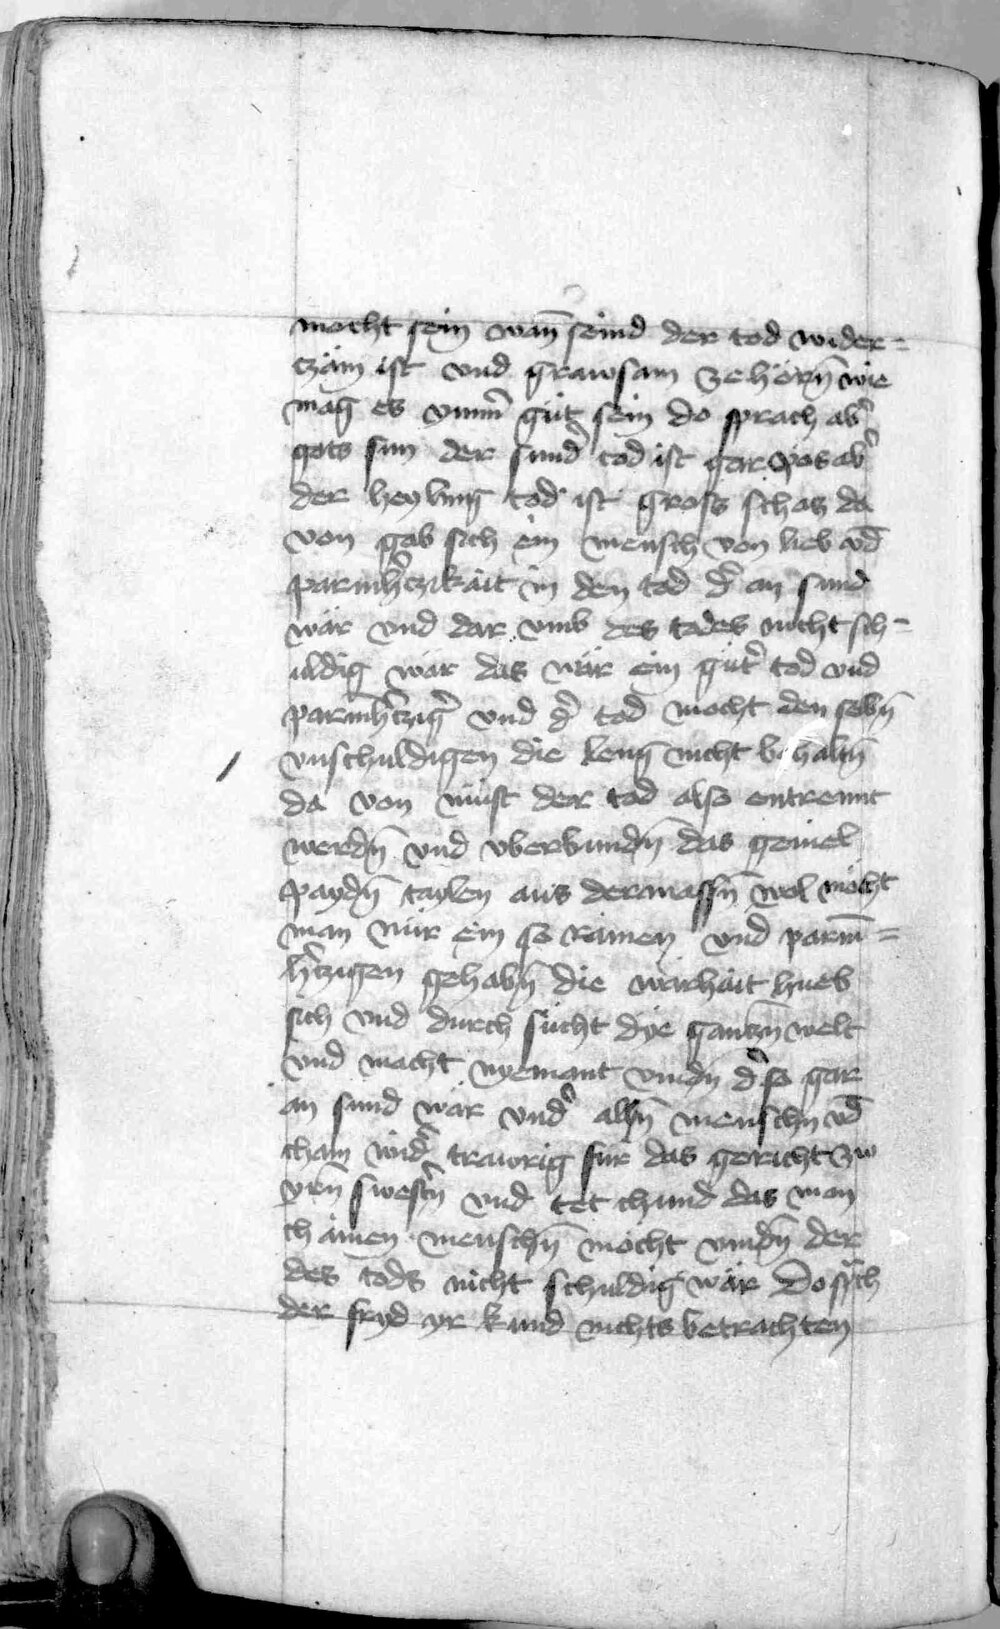 mocht sein wañ seind der tod wider=
czäm ist vnd grawsam ze hörñ wie
mag es ym̄er güt sein do sprach ab̉
gots sun der sund̉ tod ist gar pös ab̉
der heyling tod ist gross schas da
von gab sich ein mensch von lieb vd̄
parmh̉czikait in den tod d̉ an sund
wär vnd dar vmb des todes nicht sch=
uldig wär das wär ein güt̉ tod vnd
parmh̉czig̉ vnd d̉ tod mocht den selbñ
vnschuldigen die leng nicht behaltñ
da von müst der tod also entrennt
werdñ vnd vberbundñ das gemel
paydñ taylen aus dermassñ wol möcht
man nür ein so rainen vnd parm̄=
h̉czigen gehabñ die warhait hueb
sich vnd durch sücht dye ganczñ welt
vnd macht nyemant vindñ d̉ so gar
an sund wär vnd̉ allñ menschñ vd̄
cham wid̉ trawrig für das gericht zw
yrñ swest̉n vnd tet chund das man
chainen menschñ möcht vindñ der
des tods nicht schuldig wär Do sp̃ch
der fryd yr kund nichts betrachten